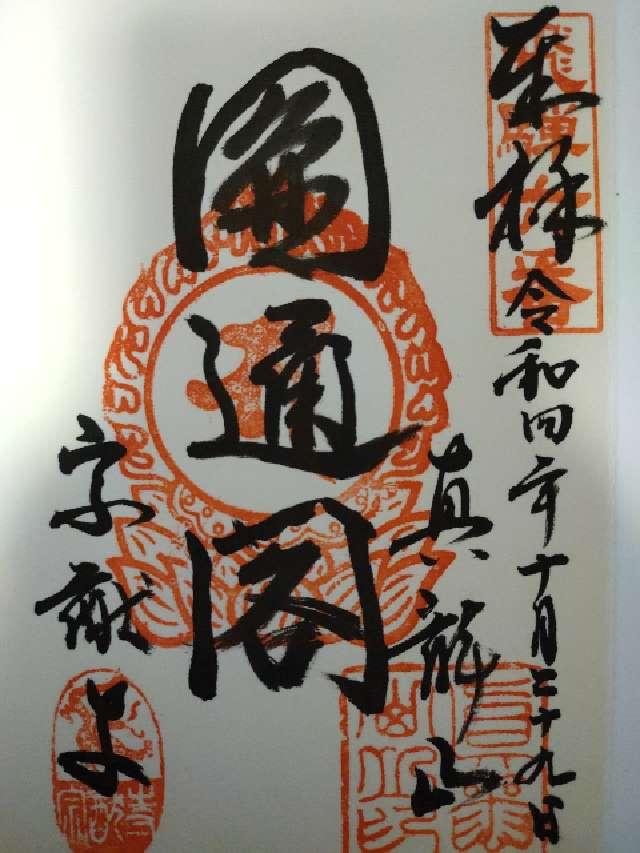 奉拝 令和四年十月二十九日
真龍山
圓通閣
宗猷寺